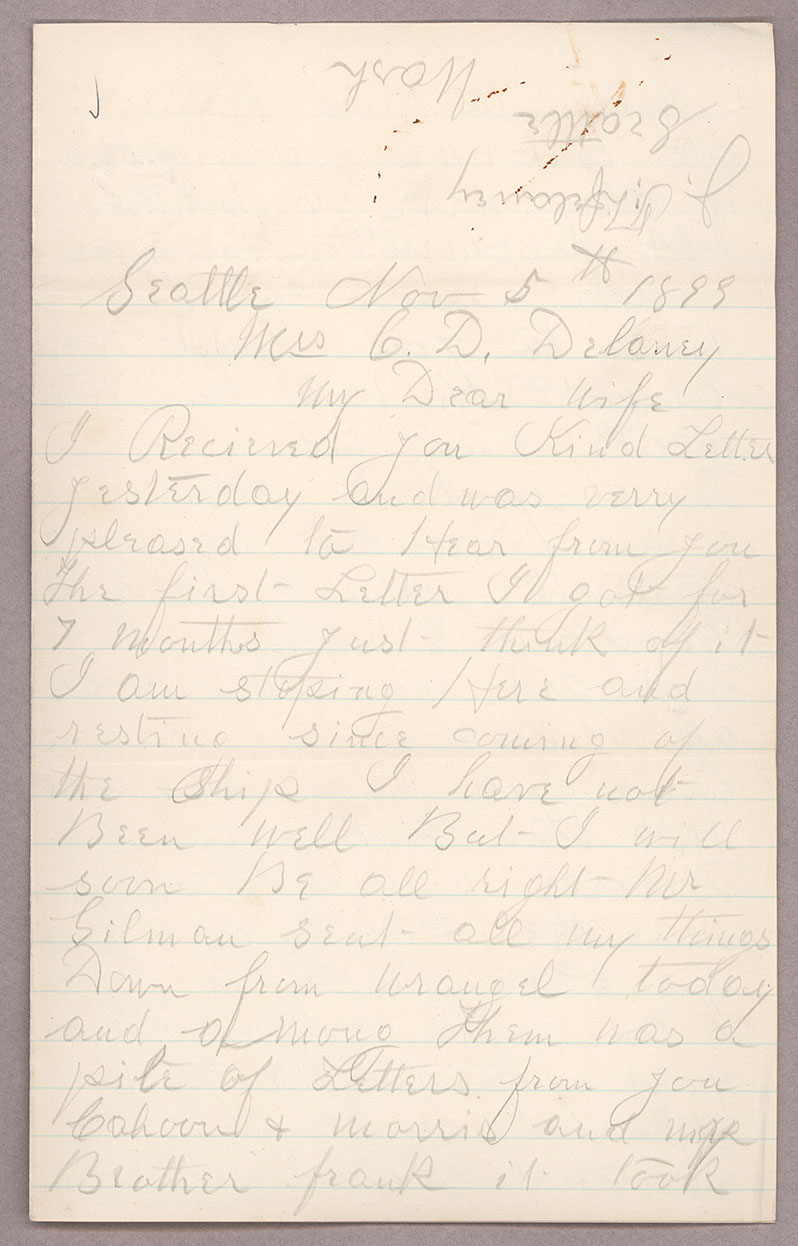 J. T. Delaney
Seattle
Wash
Seattle Nov 5th 1899
Mrs C. D. Delaney
My Dear wife
I Recieved you Kind Letter
yesterday and was verry
pleased to Hear from you
the first Letter I got for
7 months just think of it
I am stoping Here and
resting since coming of
the Ship I have not
Been well But I will
soon Be all right Mr
Gilman sent all my things
Down from wrangel today
and among them was a
pile of Letters from you
Cahoon & morris and
Brother frank it took